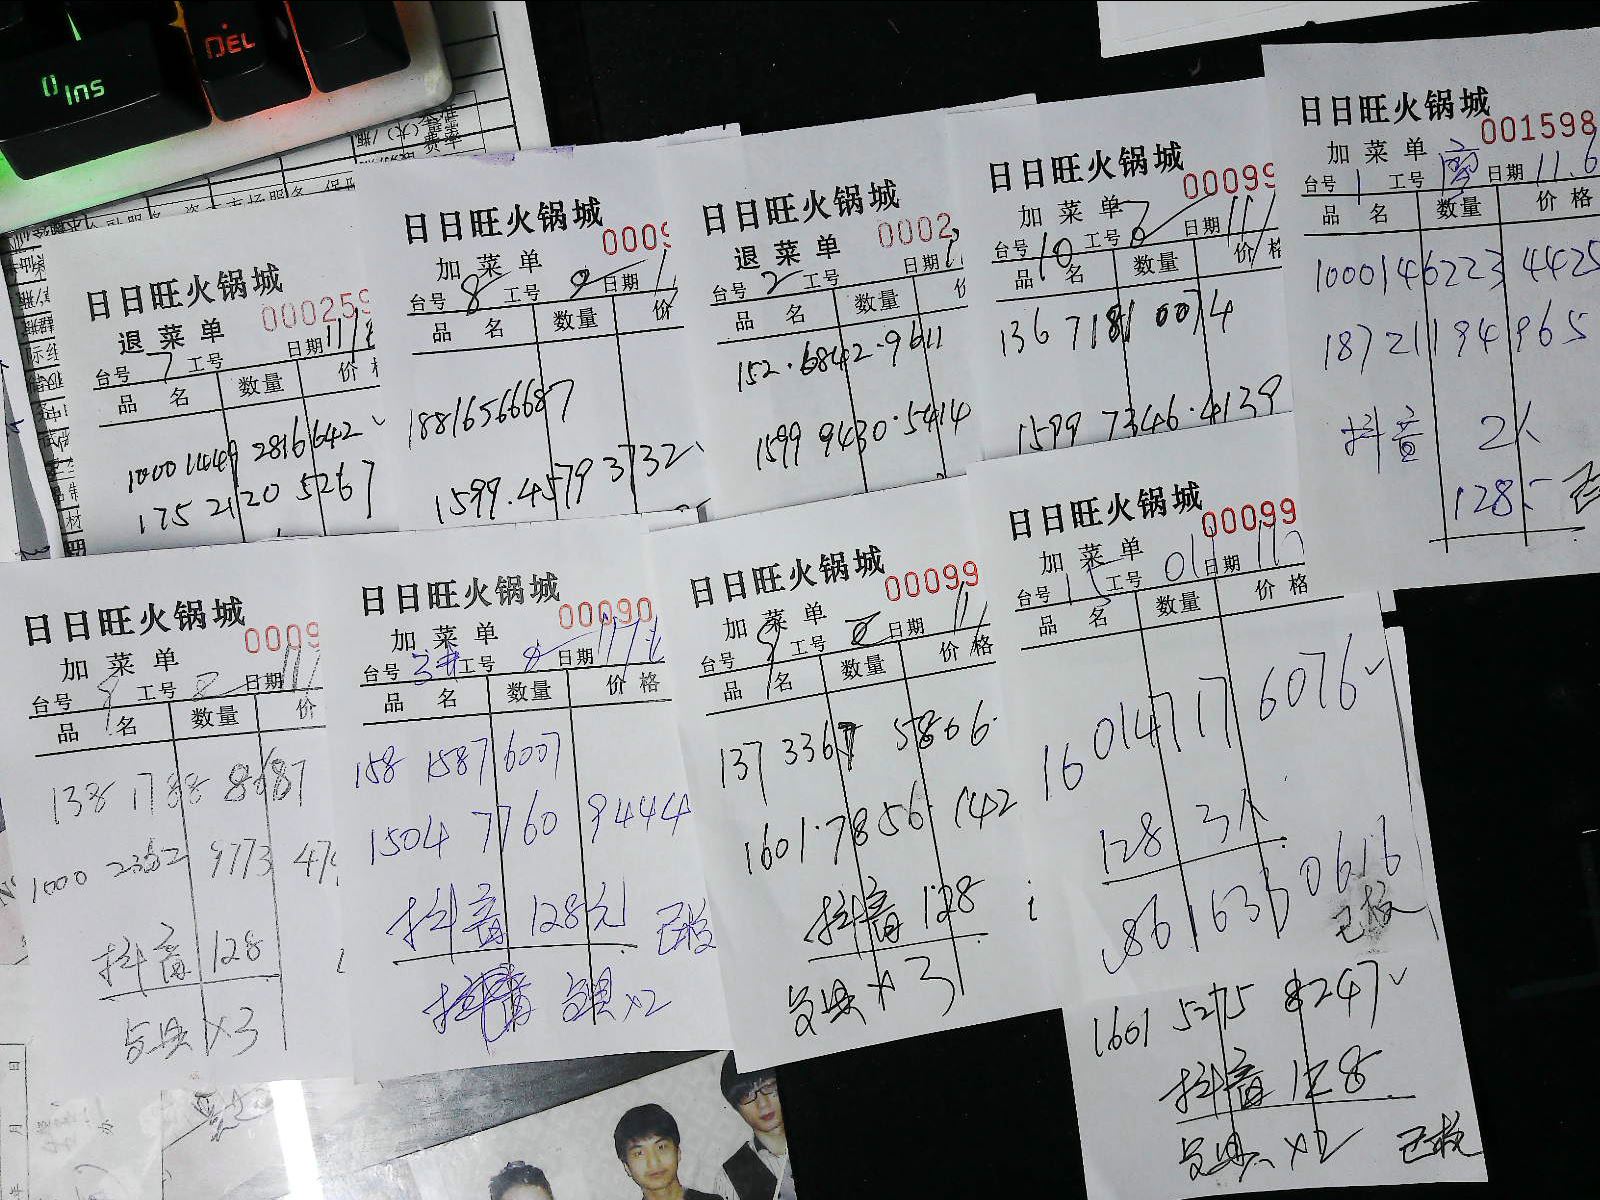 Ins
DEL
日日旺火锅城
000259
退菜单
台号 7 工号 日期 11/
品名 数量 价
10001449 2816642
175 2120 5267
日日旺火锅城
0009
加菜单
台号 8 工号 日期
品名 数量 价
18816566687
1599.4579 3732
日日旺火锅城
0002
退菜单
台号 2 工号 日期
品名 数量
152.6842.9611
1599 9430.5414
日日旺火锅城
00099
加菜单
台号 10 工号 日期 11/
品名 数量 价格
136 7181 0074
1599 7346.4139
日日旺火锅城
001598
加菜单
台号 1 工号 日期 11.6
品名 数量 价格
1000146223 4425
18721194965
抖音 2人
128
日日旺火锅城
0009
加菜单
台号 工号 8 日期 11/
品名 数量 价
138 1788 8687
1000 2352 9773 47
抖音 128
×3
日日旺火锅城
00090
加菜单
台号 3# 工号 日期 11/
品名 数量 价格
158 1587 6007
1504 7760 9444
抖音 128元 已核
抖音 ×2
日日旺火锅城
00099
加菜单
台号 9 工号 日期 11/
品名 数量 价格
137 3367 5866
1601.7856.142
抖音 128
×3
日日旺火锅城
00099
加菜单
台号 15 工号 01 日期
品名 数量 价格
16014717 6076
128 3人
861633 0616
已核
1601 5275 8247
抖音 128
×2 已核